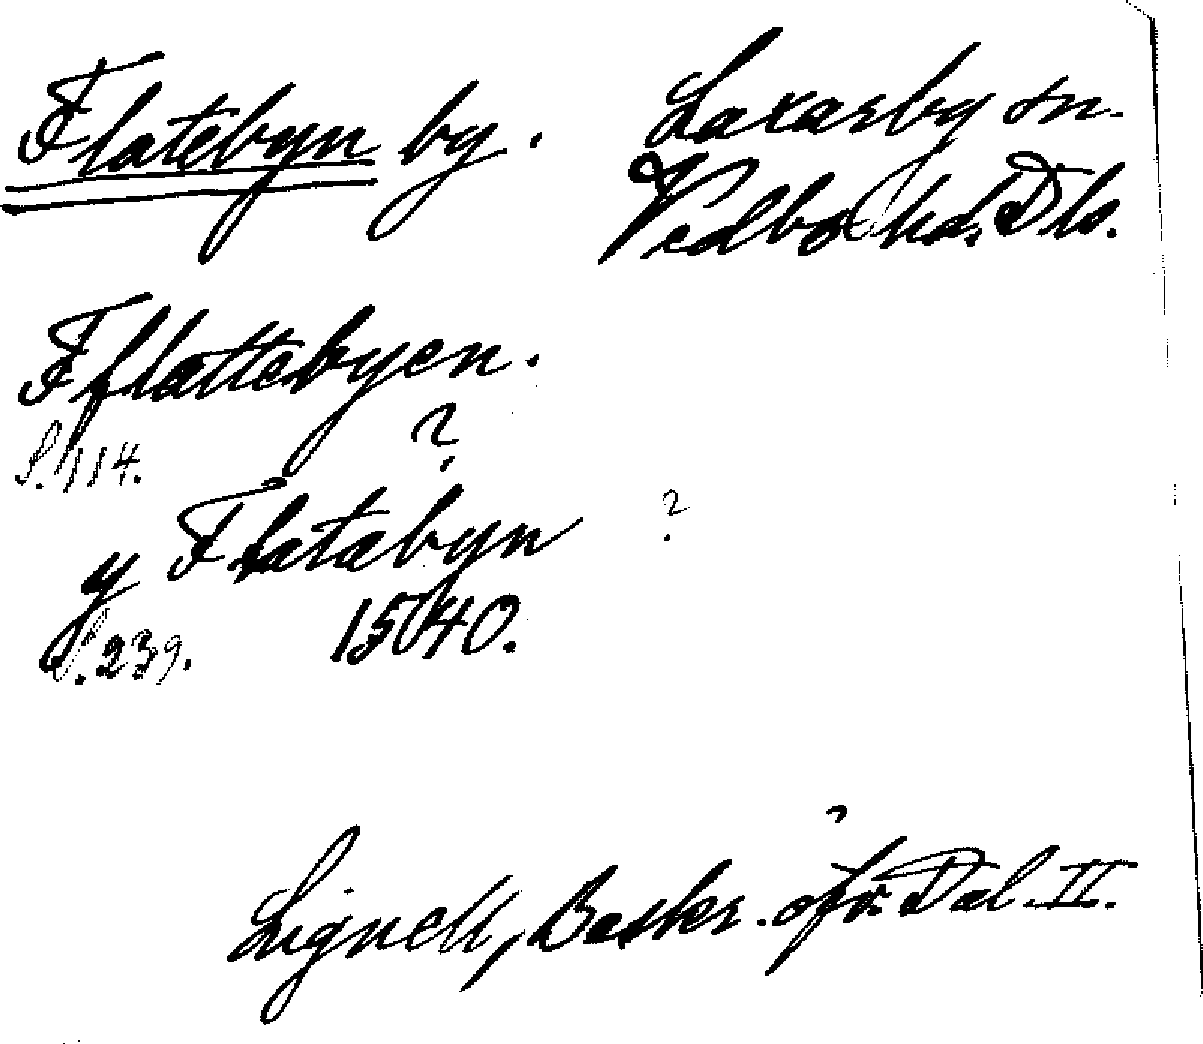 Flatebyn by. Laxarby sn.
Vedbo hd, Dls.
Fflattebyen.
S. 114. ?
y Flatabyn ?
S. 239. 1540.
Lignell, Beskr. öfv. Dal. II.